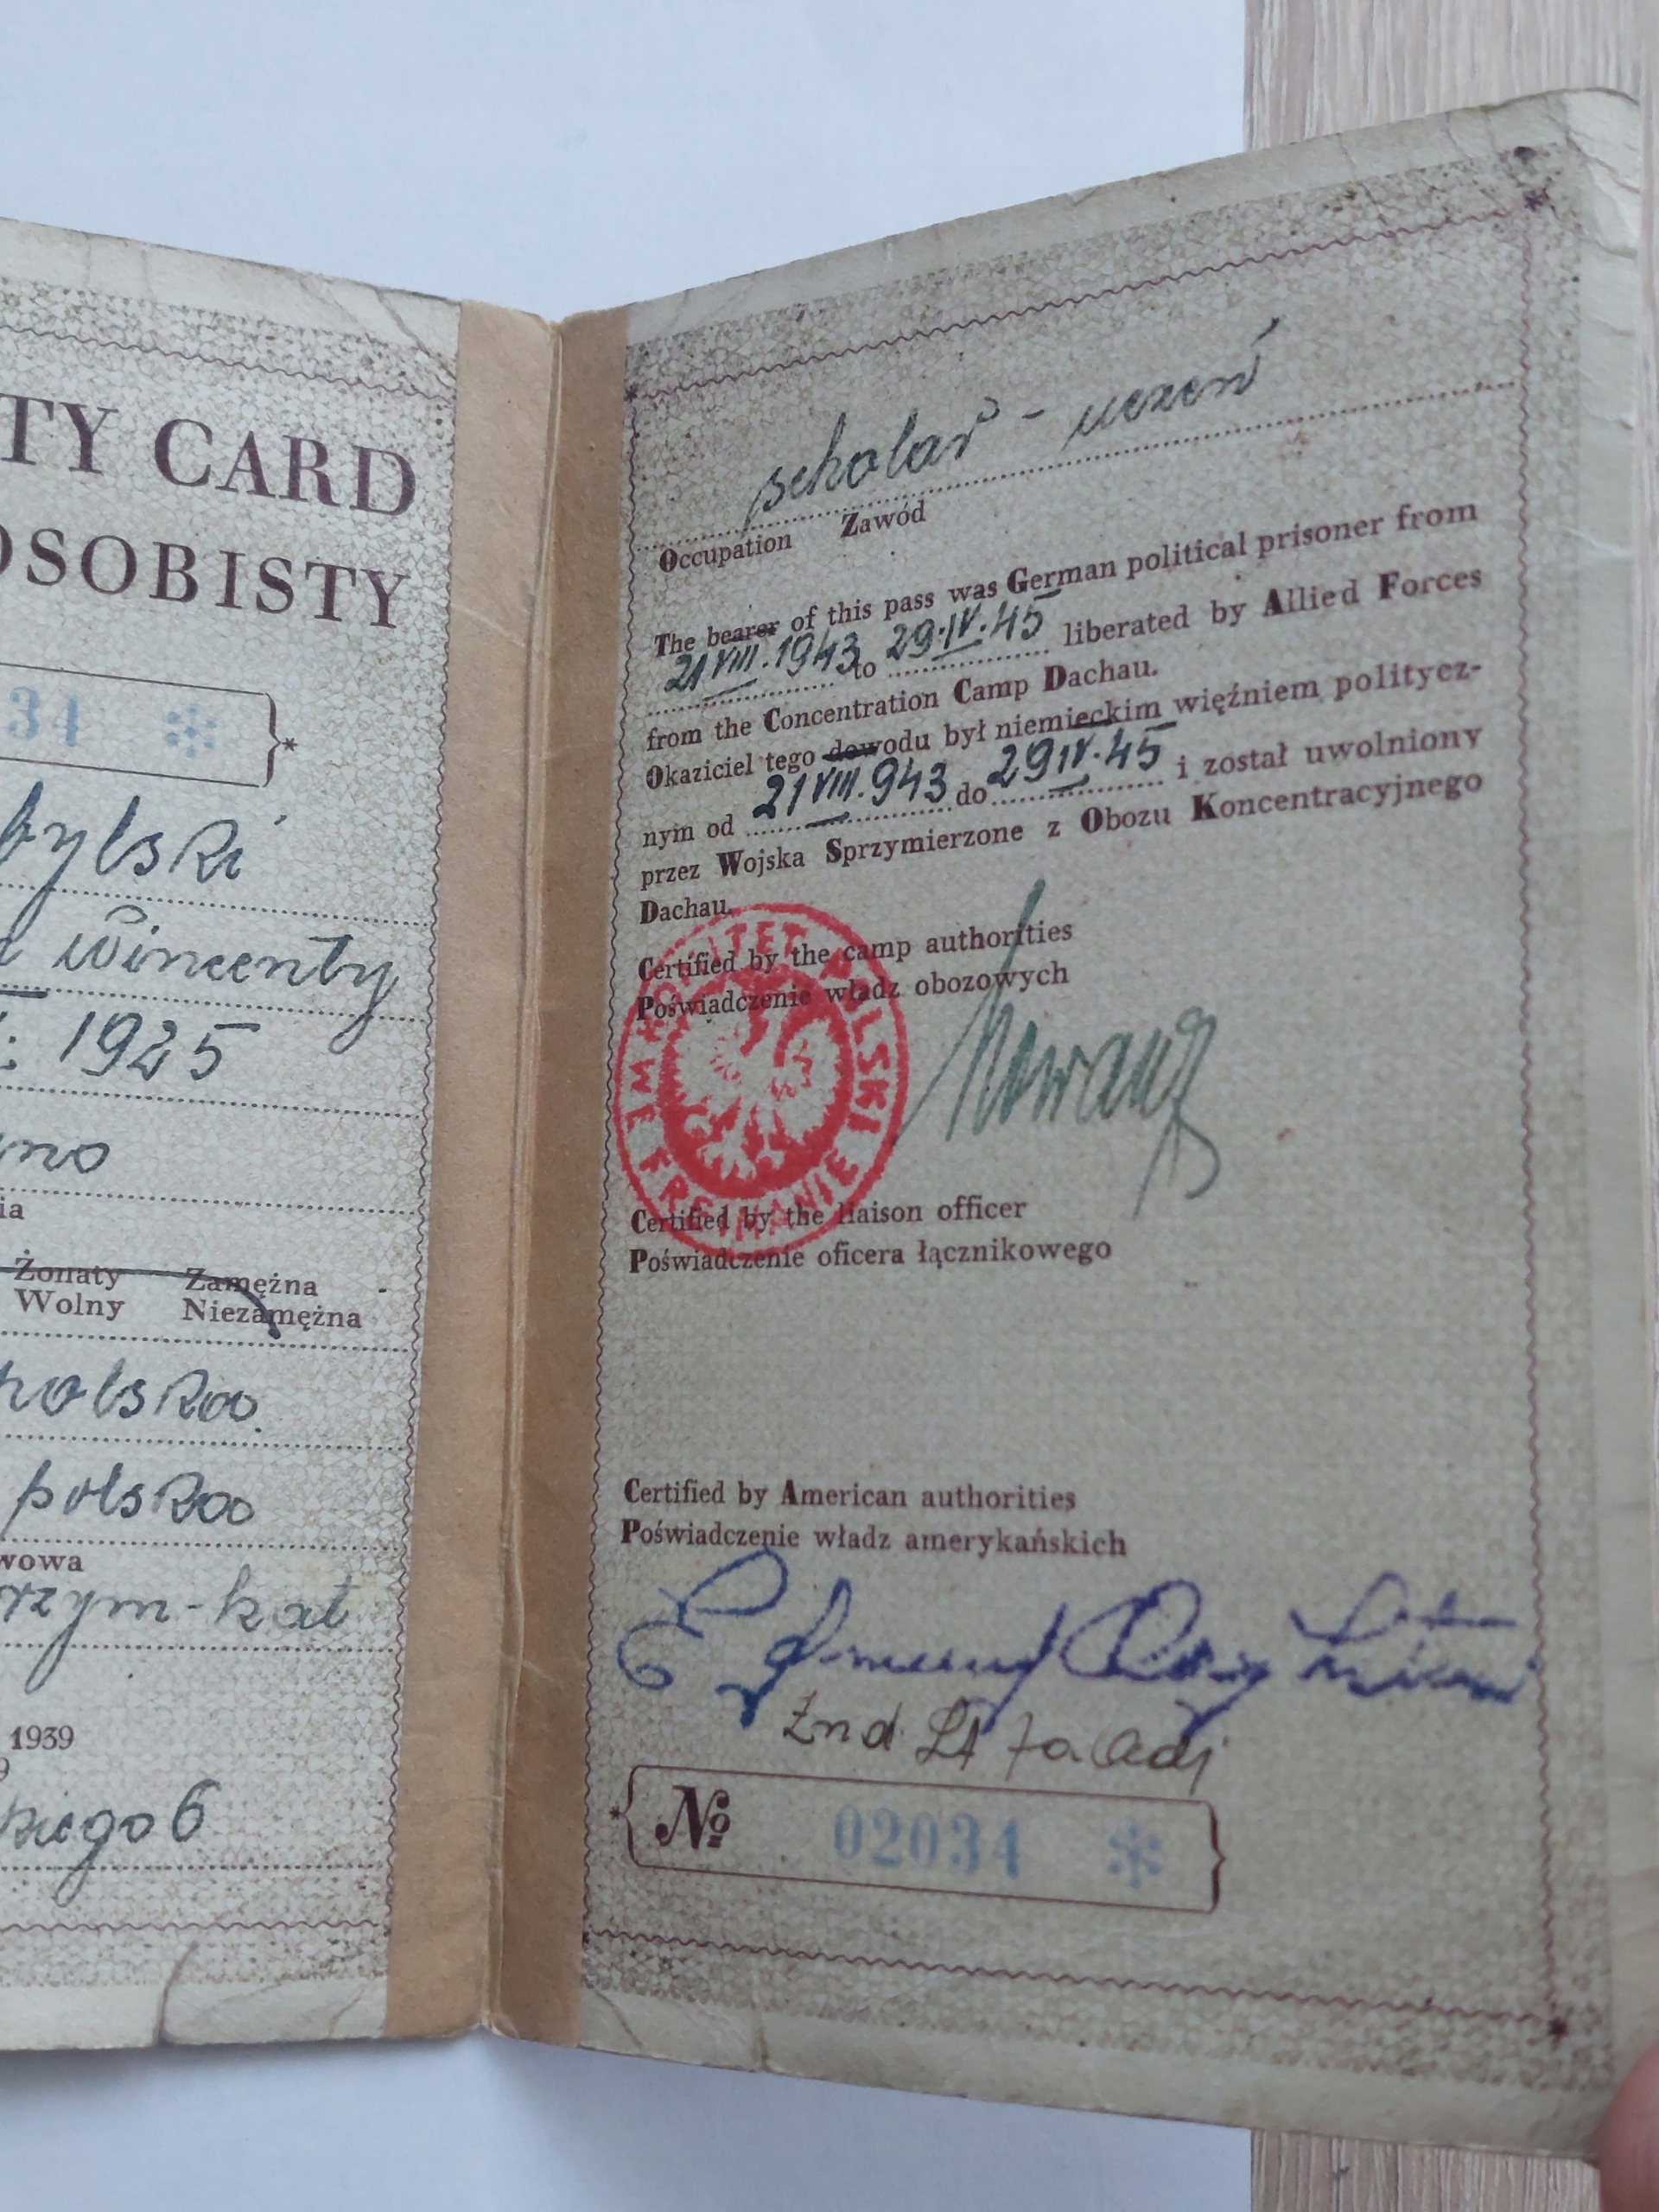 TY CARD
OSOBISTY
34 *
bylski
wincenty
1925
no
ia
Żonaty Zamężna
Wolny Niezamężna
polskoo
polskoo
wowa
rzym-kat
1939
kiego 6
scholar - uczeń
Occupation Zawód
The bearer of this pass was German political prisoner from
21 VIII. 1943 to 29.IV.45 liberated by Allied Forces
from the Concentration Camp Dachau.
Okaziciel tego dowodu był niemieckim więźniem politycz-
nym od 21 VIII. 943 do 29 IV.45 i został uwolniony
przez Wojska Sprzymierzone z Obozu Koncentracyjnego
Dachau.
Certified by the camp authorities
Poświadczenie władz obozowych
KOMITET POLSKI
W FREIMANIE
Certified by the liaison officer
Poświadczenie oficera łącznikowego
Certified by American authorities
Poświadczenie władz amerykańskich
2nd Lt Adj
№ 02034 *